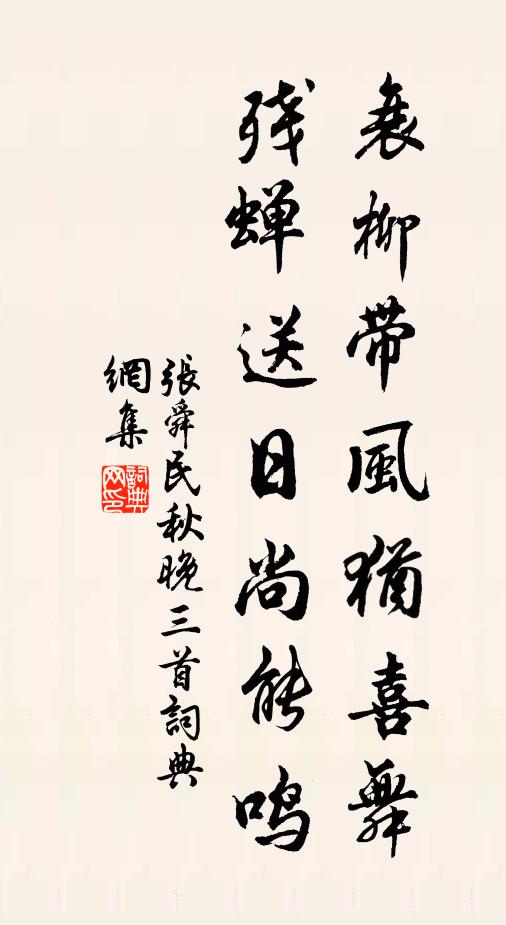 衰柳带風猶喜舞
残蝉送日尚能鸣
張舜民秋晚三首詞典
網集
詞典
网印